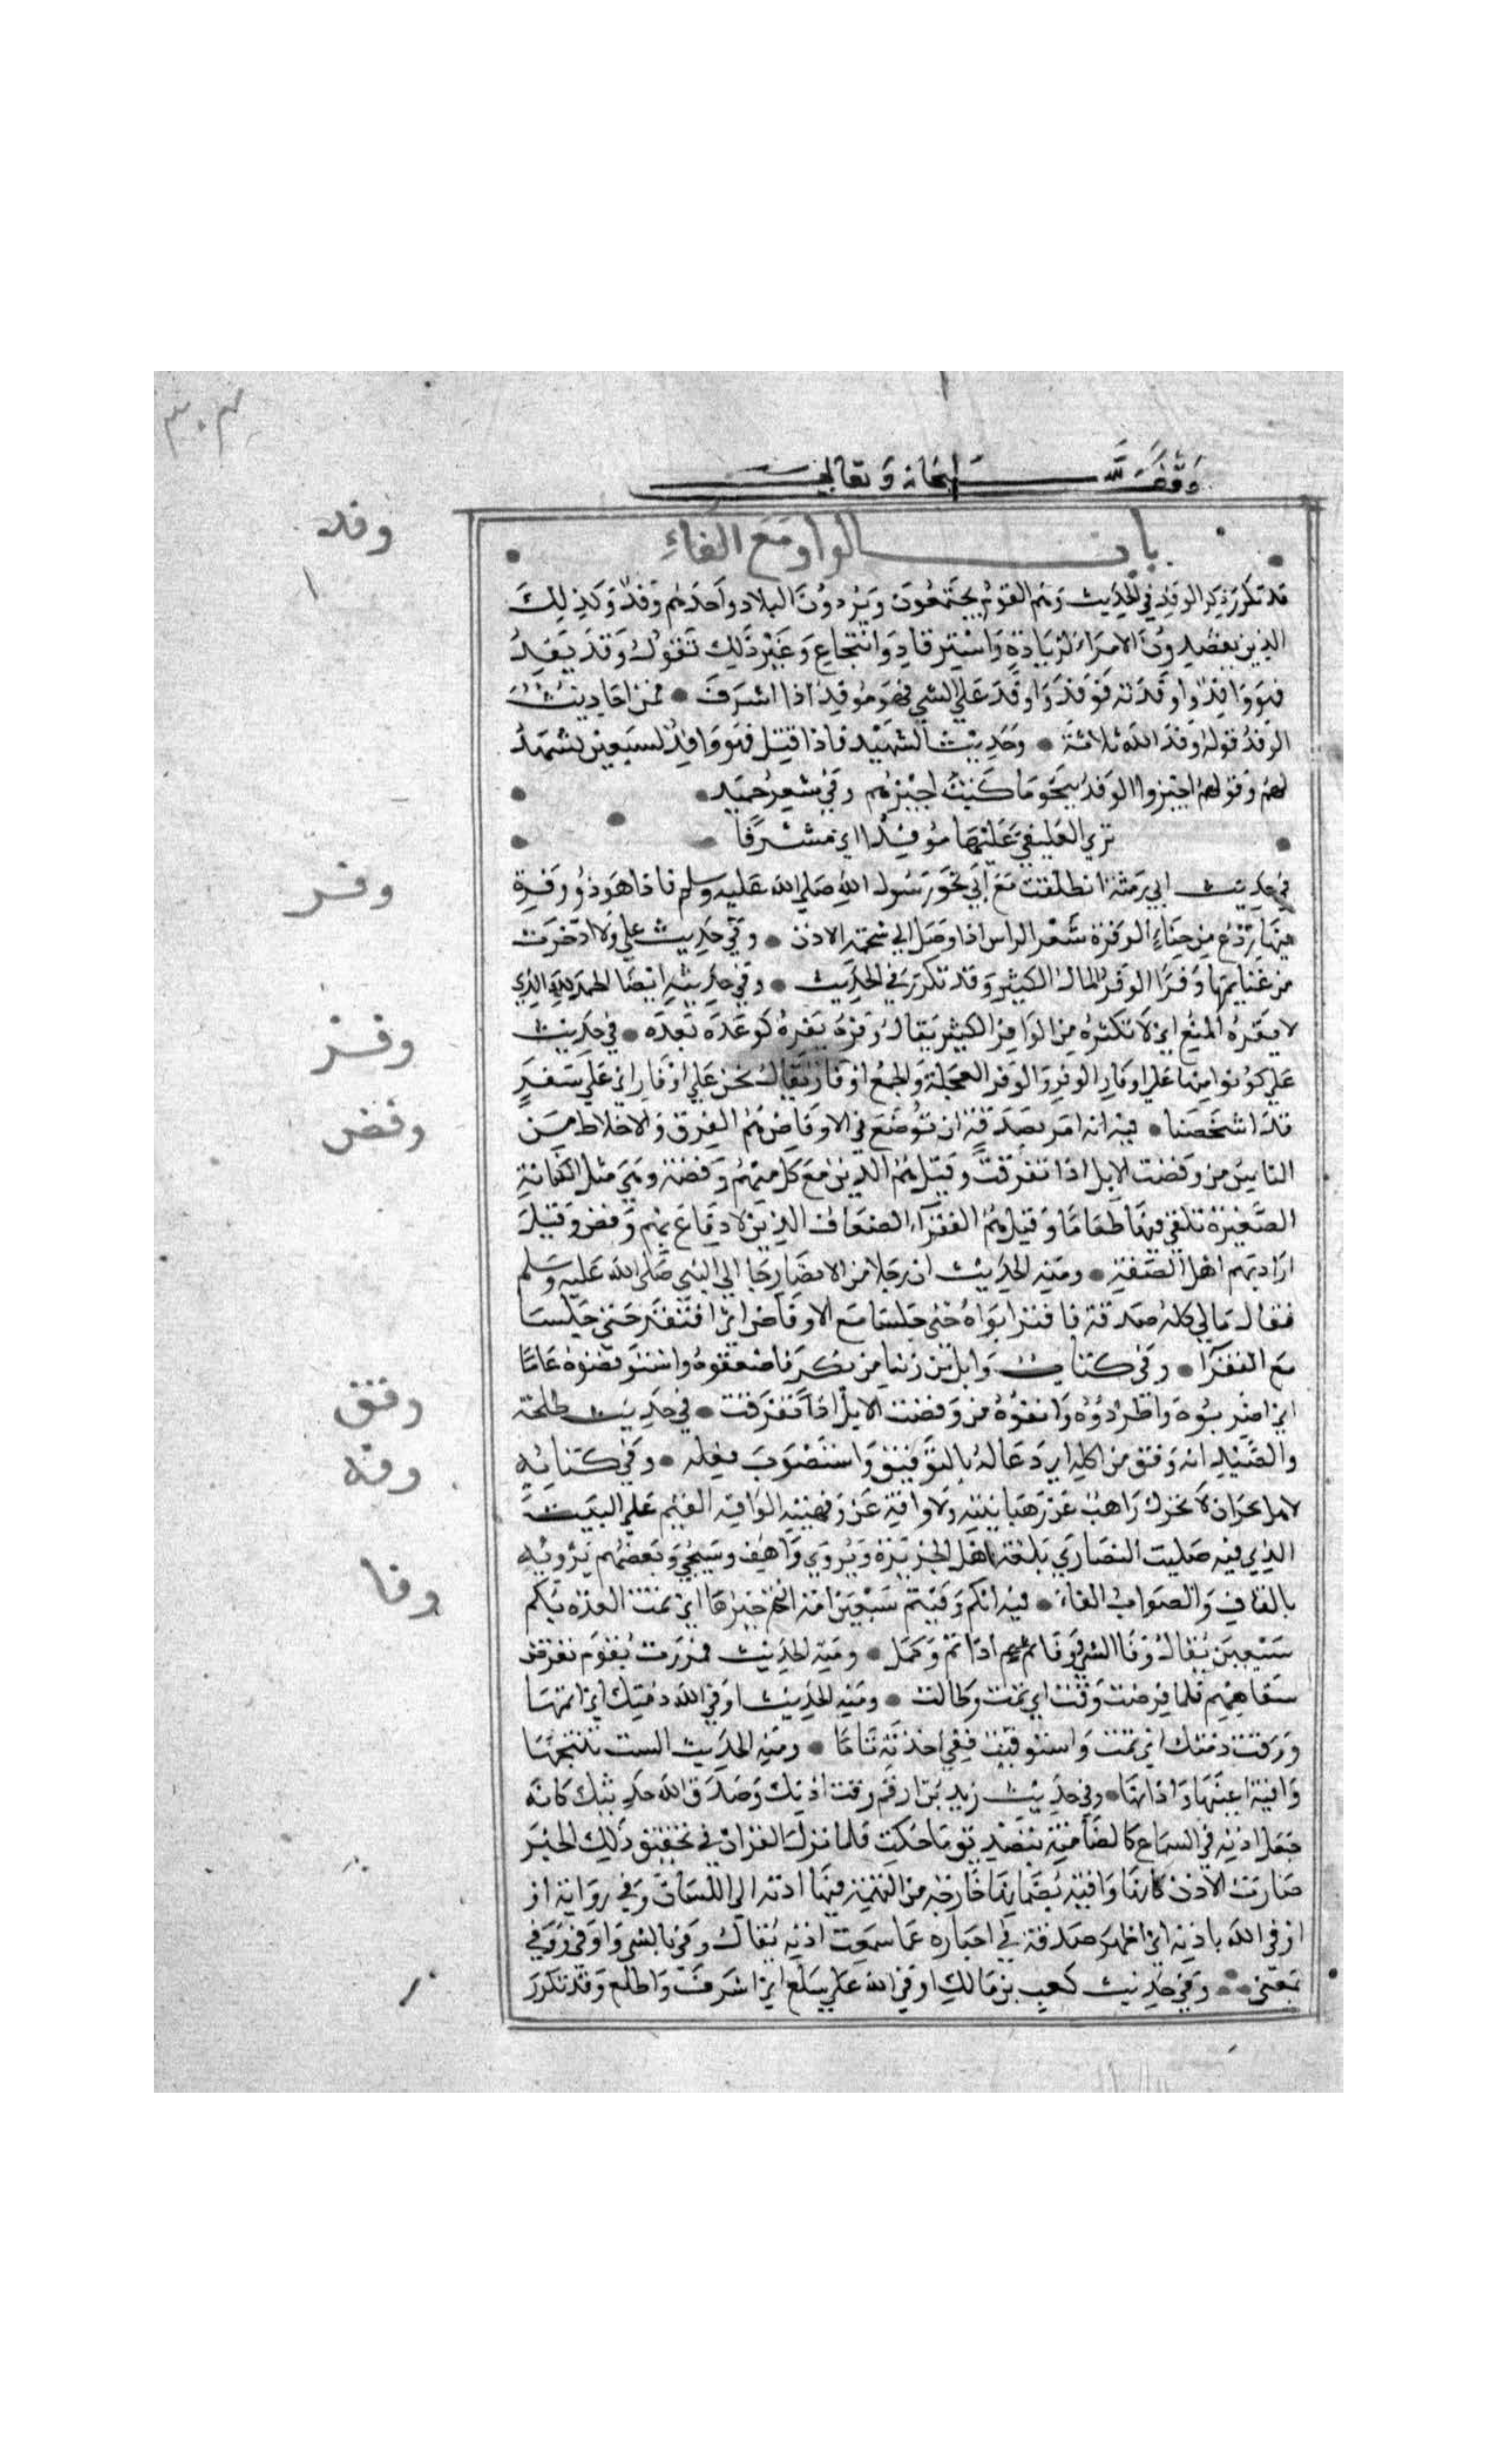 ٣٠٣
وقف لله سبحانه وتعالى
باب الواو مع الفاء
وفد
قد تكرر ذكر الوفد في الحديث وهم القوم يجتمعون ويردون البلاد واحدهم وافد وكذلك
الذين يقصدون الامراء لزيادة واسترفاد وانتجاع وغير ذلك تقول وفد يفد
فهو وافد واوفدته فوفد واوفد على الشي فهو موفد اذا اشرف • فمن احاديث
الوفد قوله وفد الله ثلاثة • وحديث الشهيد فاذا قتل فهو وافد لسبعين يشهد
لهم وقوله اجيزوا الوفد بنحو ما كنت اجيزهم وفي شعر حميد •
ترى العليفي عليها موفدا اي مشرفا
وفر
في حديث ابي رمثة انطلقت مع ابي نحو رسول الله صلى الله عليه وسلم فاذا هو ذو وفرة
فيها ردع من حناء الوفرة شعر الراس اذا وصل الى شحمة الاذن • وفي حديث علي ولا ادخرت
من غنايمها وفرا الوفر المال الكثير وقد تكرر في الحديث • وفي حديثه ايضا الحمد لله الذي
وفز
لا يفره المنع اي لا تكثره من الوافر الكثير يقال وفره يفره كوعده يعده • في حديث
علي كونوا منها على اوفاز الوفز والوفز العجلة والجمع اوفاز يقال نحن على اوفاز اي على سفر
وفض
قد اشخصنا • فيه انه امر بصدقة ان توضع في الاوفاض هم الفرق والاخلاط من
الناس من وفضت الابل اذا تفرقت وقيل هم الذين مع كل منهم وفضة وهي مثل الكنانة
الصغيرة تلقي فيها طعاما وقيل هم الفقراء الضعاف الذين لا دفاع بهم وفض وقيل
اراد بهم اهل الصفة • ومنه الحديث ان رجلا من الانصار جا الى النبي صلى الله عليه وسلم
فقال مالي كله صدقة فاقتر ابواه حتى جلسا مع الاوفاض اي افتقرا حتى جلسا
مع الفقرا • وفي كتاب وايل من زنا من بكر فاصقعوه واستوفضوه عاما
وفق
اي اضربوه واطردوه وانفوه من وفضت الابل اذا تفرقت • في حديث طلحة
وفه
والصيد انه وفق من اكله اي دعا له بالتوفيق واستصوب فعله • وفي كتابه
لاهل نجران لا يحرك راهب عن رهبانيته ولا وافه عن وفهيته الوافه القيم على البيت
الذي فيه صليب النصارى بلغة اهل الجزيرة ويروى واهف وسيجي وبعضهم يرويه
وفا
بالقاف والصواب الفاء • فيه انكم وفيتم سبعين امة انتم خيرها اي تمت العدة بكم
سبعين يقال وفا الشي اذا تم وكمل • ومنه الحديث فمررت بقوم تقرض
شفاههم فلما قرضت وفت اي تمت وطالت • ومنه الحديث اوفى الله ذمتك اي اتمها
ووفت ذمتك اي تمت واستوفيت حقي اخذته تاما • ومنه الحديث الست تنتجها
وافية اعينها واذانها • وفي حديث زيد بن ارقم وفت اذنك وصدق الله حديثك كانه
جعل اذنه في السماع كالضامنة بتصديق ما حكت فلما نزل القران في تحقيق ذلك الخبر
صارت الاذن كانها وافية بضمانها خارجة من التهمة فيما ادته الى اللسان وفي رواية او
اوفى الله باذنه اي اظهر صدقه في اخباره عما سمعت اذنه يقال وفى بالشي واوفى ووفى
بمعنى • وفي حديث كعب بن مالك اوفى الله على سلع اي اشرف واطلع وقد تكرر